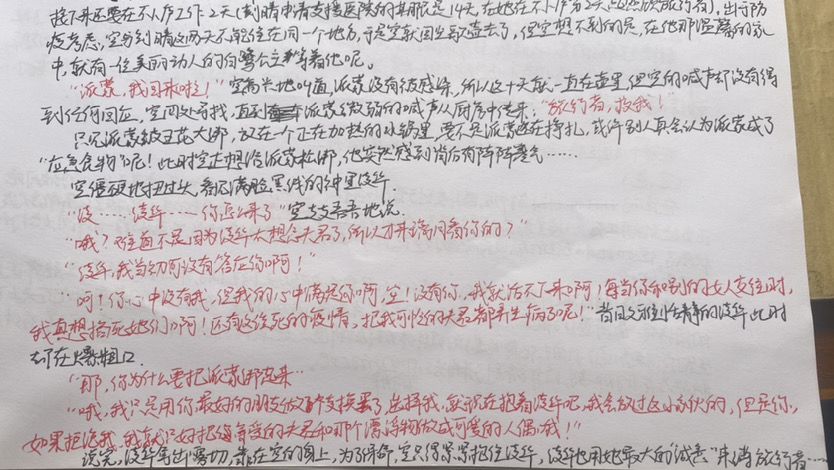 接下来还要在不卜庐工作2天(刻晴申请支援医院的期限是14天,在她在不卜庐第2天
疫考虑,空与刻晴这两天不能住在同一个地方,于是空就回尘歌壶去了,但空想不到的是,在他那温馨的家
中,就有一位美丽动人的白鹭公主等着他呢。
"派蒙,我回来啦!"空高兴地叫道,派蒙没有被感染,所以这十天就一直在壶里,但空的喊声却没有得
到任何回应,空四处寻找,直到派蒙微弱的喊声从厨房中传来:"旅行者,救我!"
只见派蒙被五花大绑,放在一个正在加热的水锅里,要不是派蒙还在挣扎,或许别人真会认为派蒙成了
"应急食物"呢!此时空正想给派蒙松绑,他突然感到背后有阵阵寒气……
空僵硬地扭过头,看见满脸黑线的神里绫华.
"绫……绫华……你怎么来了"空支支吾吾地说.
"哦?难道不是因为绫华太想念夫君了,所以才来瞧一瞧你的?"
"绫华,我当初可没有答应你啊!"
"呵!你心中没有我,但我的心中满是你啊,空!没有你,我就活不下来啊!每当你和别的女人交往时,
我真想掐死她们啊!还有这该死的疫情,把我可怜的夫君都弄生病了呢!"昔日文雅恬静的绫华此时
却在爆粗口.
"那,你为什么要把派蒙绑起来…
"哦,我只是用你最好的朋友做个交换罢了,选择我,就现在抱着绫华吧,我会放过这小家伙的,但是你
如果拒绝我,我就只好把敬爱的夫君和那个漂浮物做成可爱的人偶哦!"
说完,绫华靠在空的身上,为了保命,空只得紧紧抱住绫华,绫华也用她最大的"诚意"来消